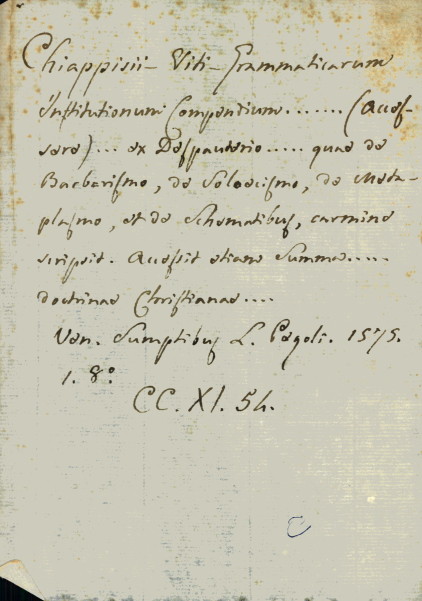 Chiappisii - Viti - Grammaticarum
Institutionum Compendium....... (Acces-
sere)... ex Despauterio..... quae de
Barbarismo, de Soloecismo, de Meta-
plasmo, et de Schematibus, carmine
scripsit. Accessit etiam Summa.....
doctrinae Christianae....
Ven. Sumptibus L. Pagoli. 1575.
1. 8°
CC. XI. 54.
C